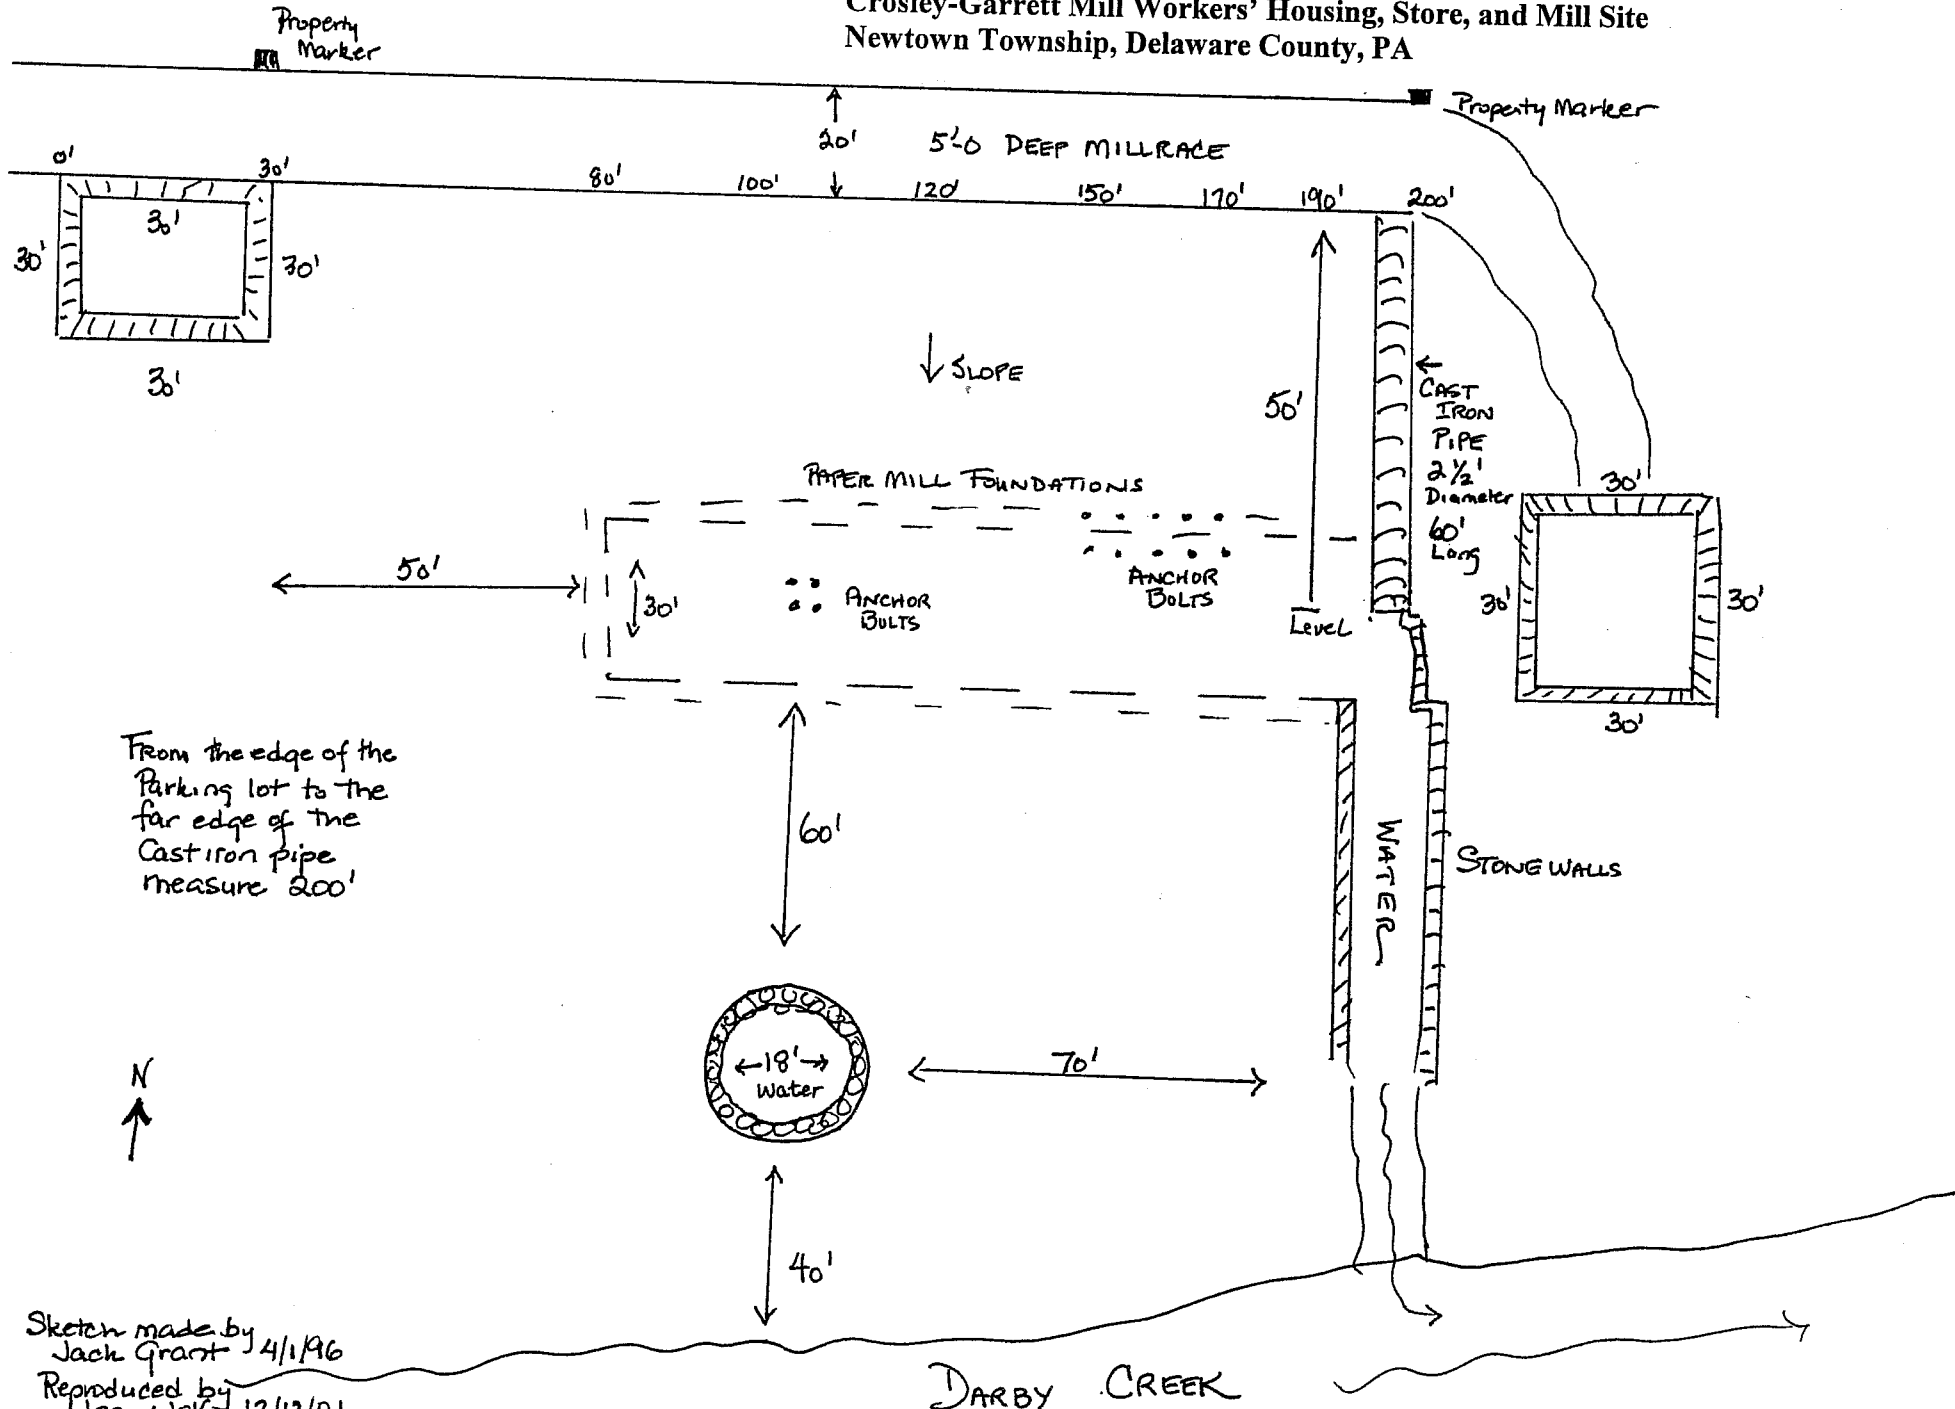 Crosley-Garrett Mill Workers' Housing, Store, and Mill Site
Newtown Township, Delaware County, PA
Property
Marker
Property Marker
20'
5'-0 DEEP MILLRACE
0'
30'
80'
100'
120'
150'
170'
190'
200'
30'
30'
30'
30'
↓ SLOPE
50'
← CAST
IRON
PIPE
2 ½'
Diameter
60'
Long
PAPER MILL FOUNDATIONS
30'
30'
30'
30'
50'
30'
ANCHOR
BOLTS
ANCHOR
BOLTS
Level
From the edge of the
Parking lot to the
far edge of the
Cast iron pipe
measure 200'
60'
WATER
STONE WALLS
←18'→
Water
70'
N
40'
Sketch made by
Jack Grant 4/1/96
Reproduced by
DARBY CREEK